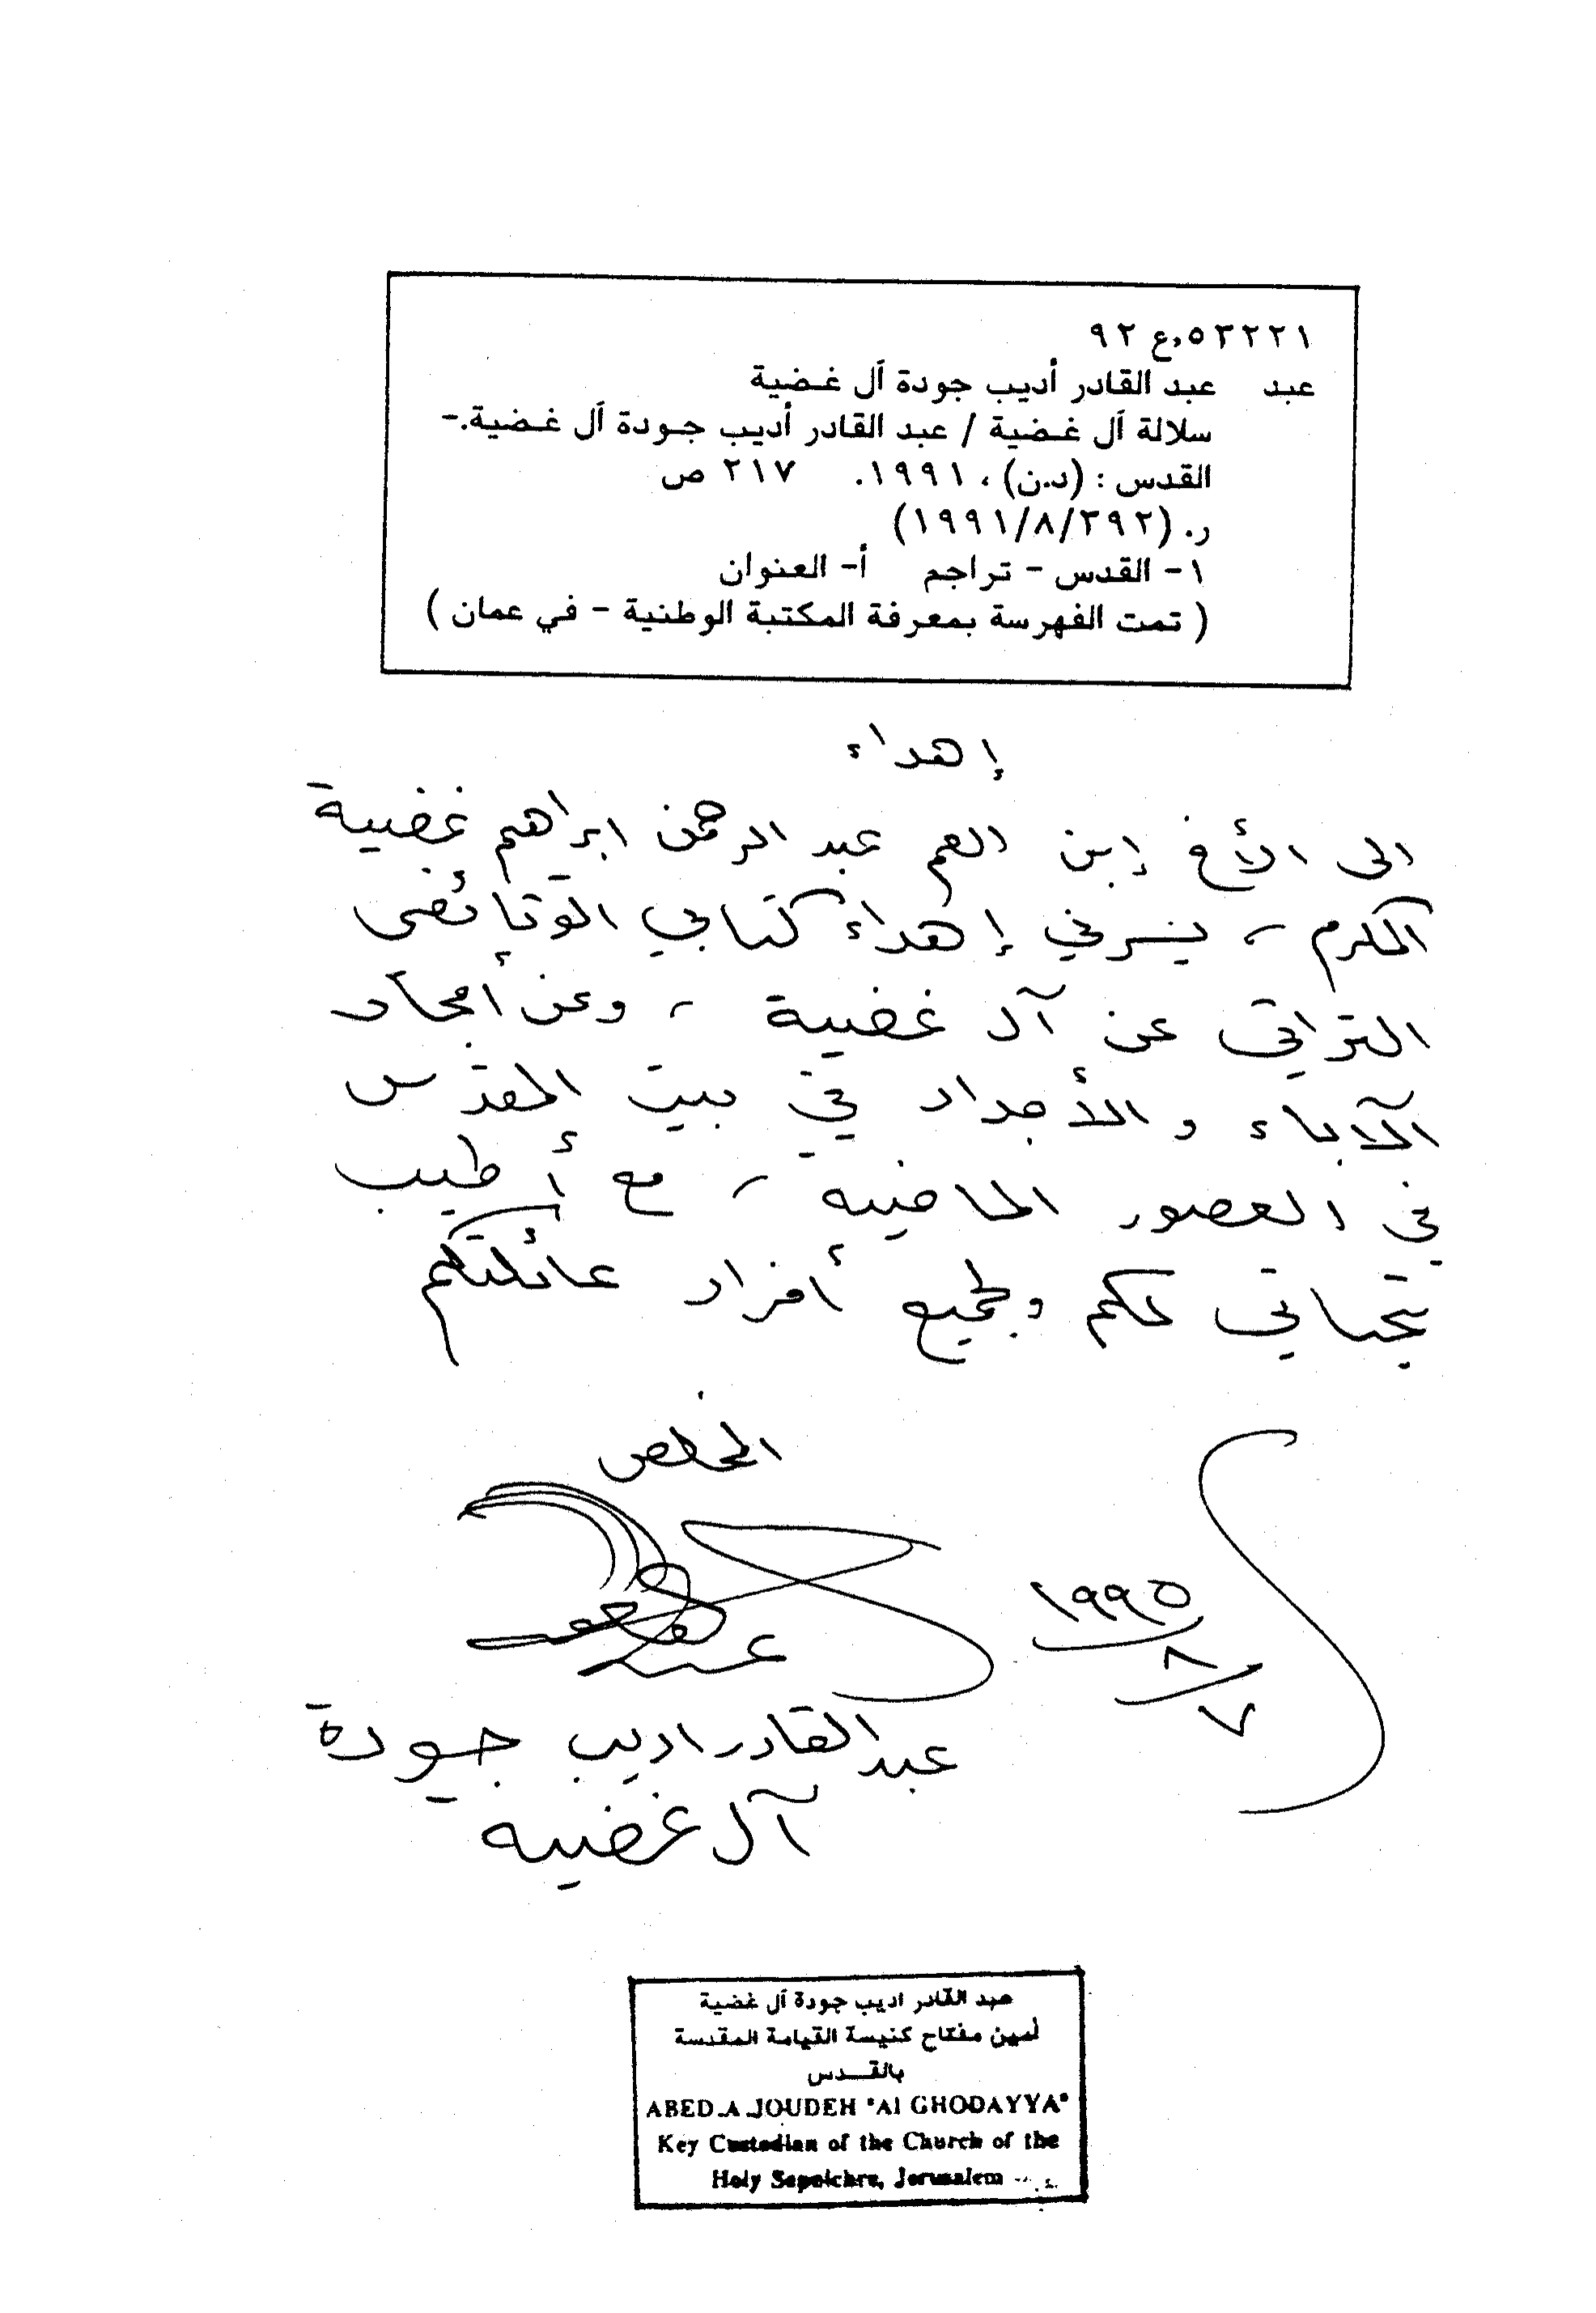 ٩٢ ع,٩٥٦٥٣٢٢١
عبد عبد القادر أديب جودة آل غضية
سلالة آل غضية / عبد القادر أديب جودة آل غضية.-
القدس : (د.ن) ، ١٩٩١. ٢١٧ ص
ر. (١٩٩١/٨/٣٩٢)
١- القدس - تراجم أ- العنوان
( تمت الفهرسة بمعرفة المكتبة الوطنية - في عمان )
إهداء
الى الأخ إبن العم عبد الرحمن ابراهيم غضية
المكرم ، يسرني إهداء كتابي الوثائقي
التراثي عن آل غضية ، وعن أمجاد
الآباء والأجداد في بيت المقدس
في العصور الماضيه ، مع أطيب
تحياتي لكم ولجميع أفراد عائلتكم
المخلص
١٩٩٥
٨
٧
عبد القادر اديب جودة
آل غضيه
عبد القادر اديب جودة آل غضية
أمين مفتاح كنيسة القيامة المقدسة
بالقدس
ABED .A .JOUDEH "Al GHODAYYA"
Key Custodian of the Church of the
Holy Sepulchre, Jerusalem